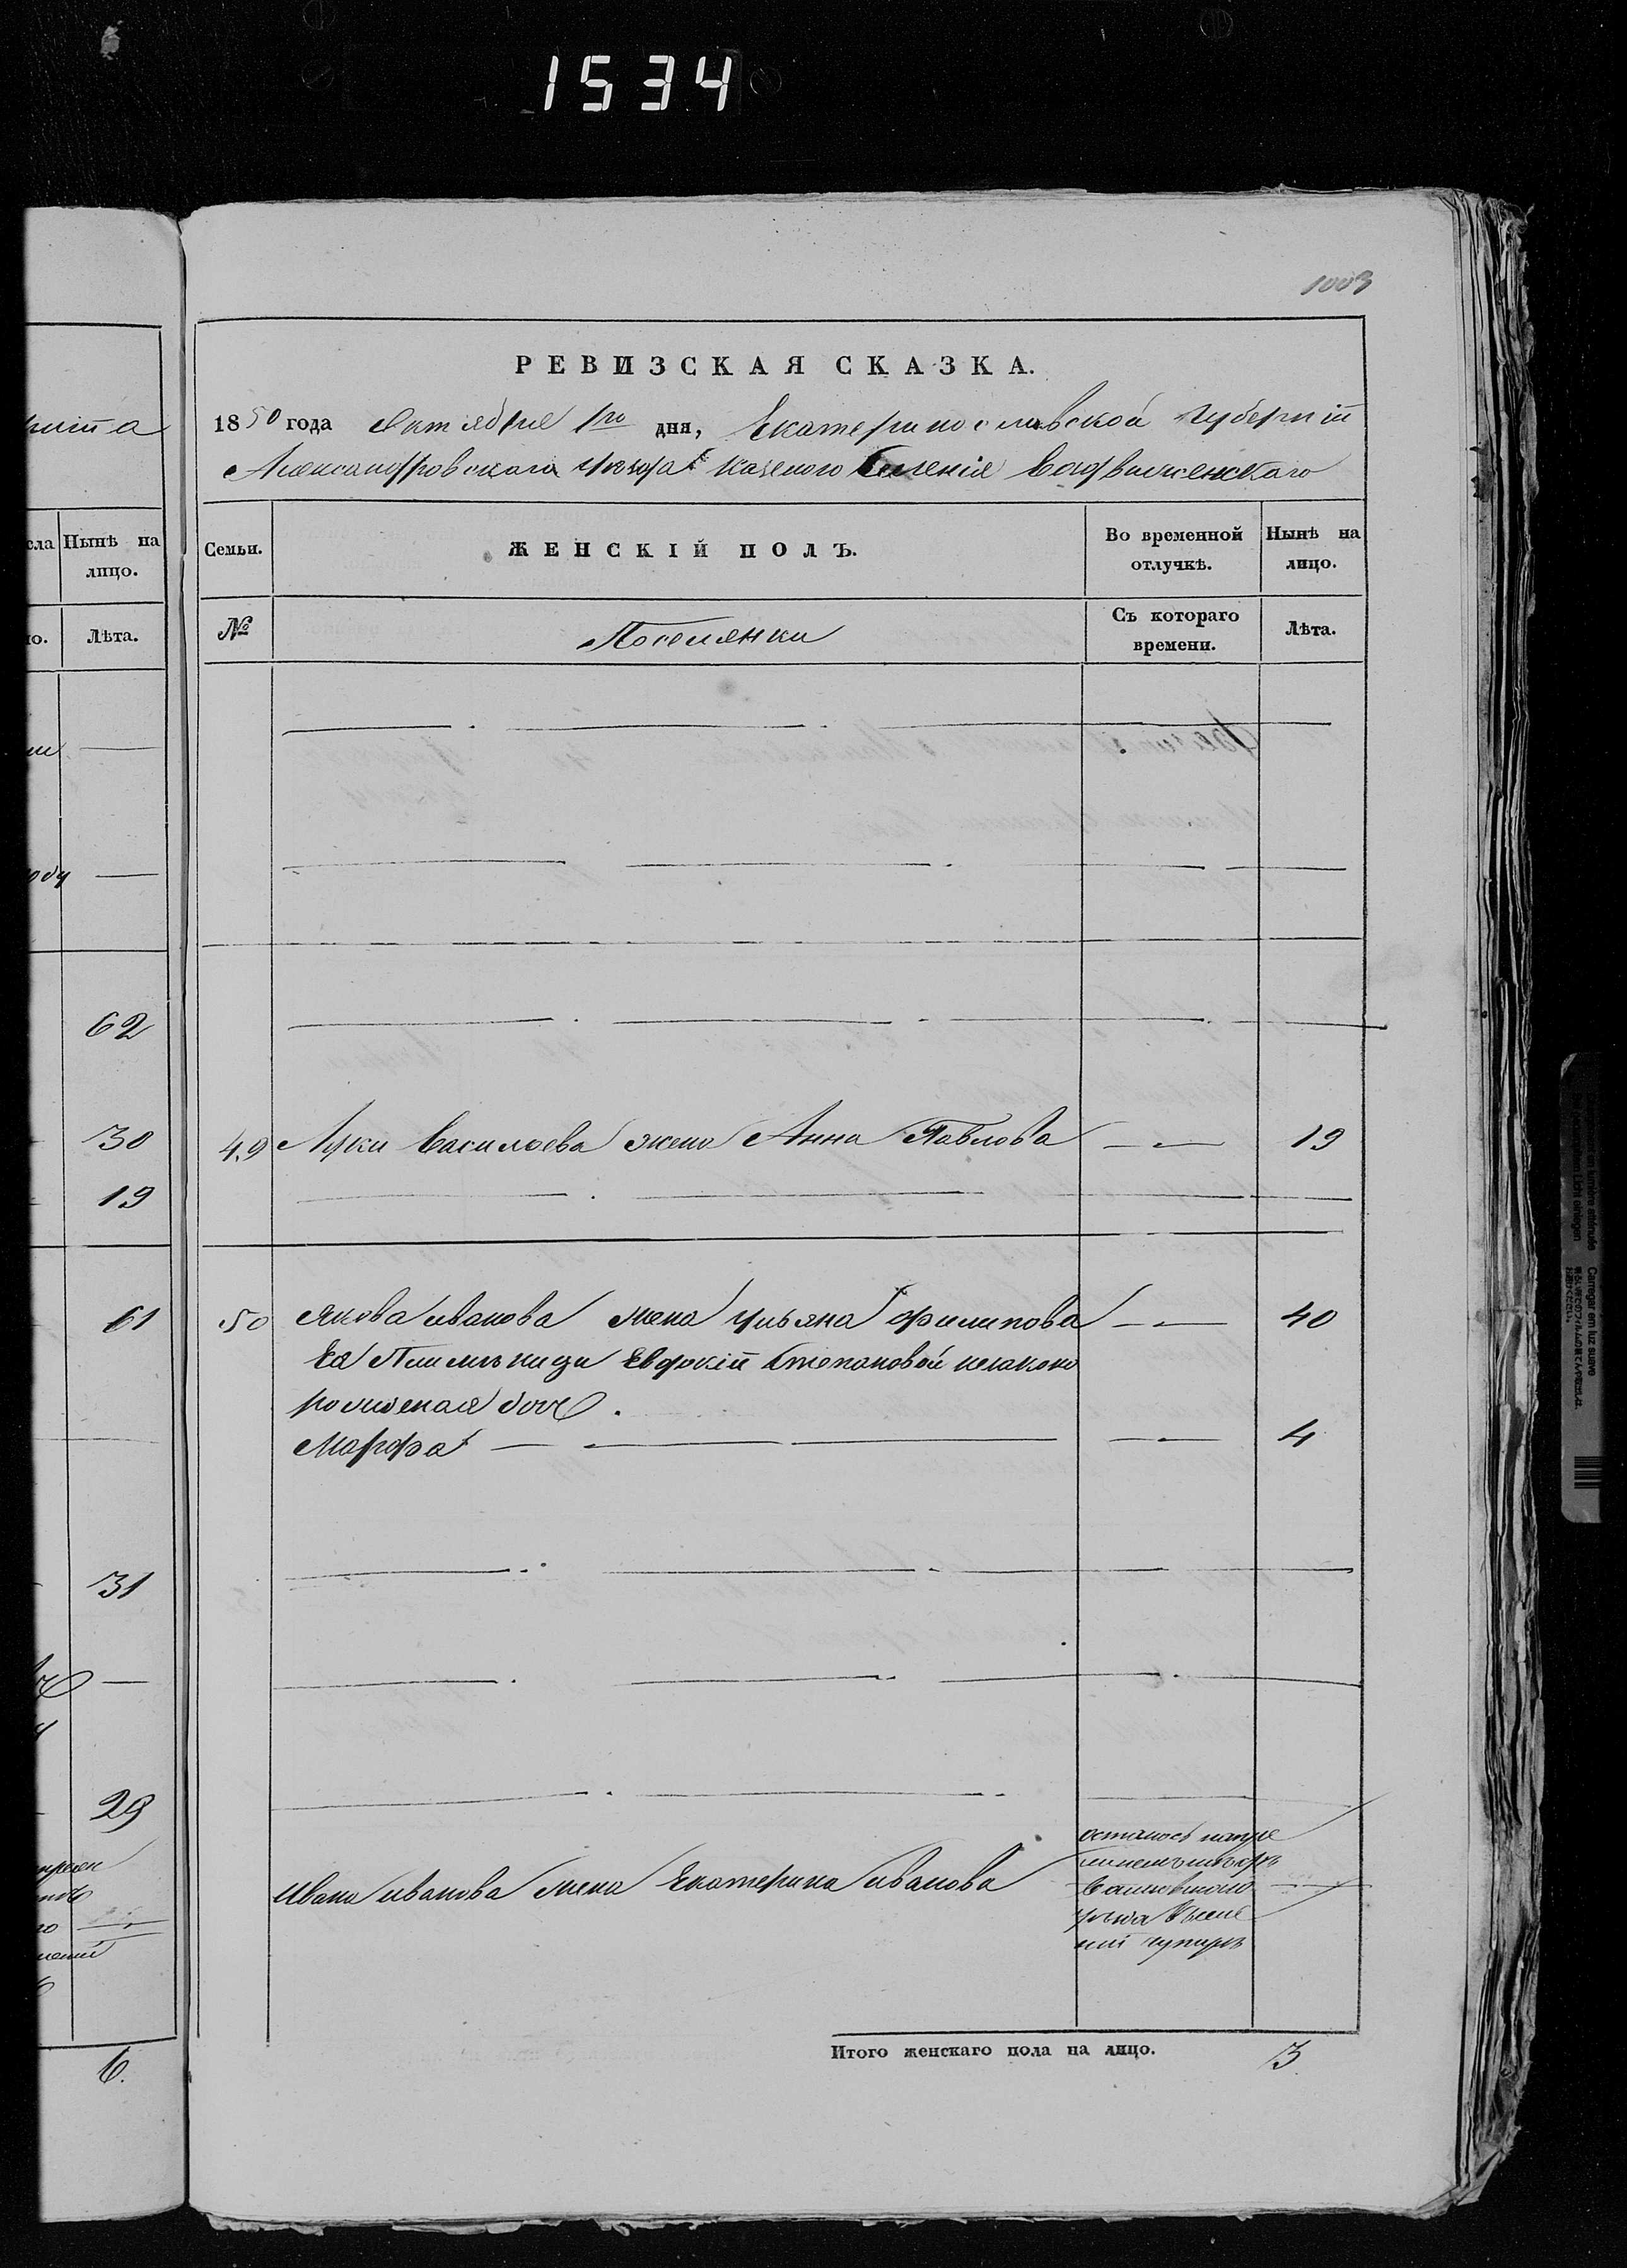 1534
1003
РЕВИЗСКАЯ СКАЗКА.
1850 года Октября 1го дня, Екатеринославской Губерніи
Александровскаго уезда казеного Селенія Воздвиженскаго
Нынѣ на
лицо.
Лѣта.
Семьи.
ЖЕНСКІЙ ПОЛЪ.
Во временной
отлучкѣ.
Нынѣ на
лицо.
№
Поселянки
Съ котораго
времени.
Лѣта.
62
30
19
61
31
29
6.
49 Луки Васильева жена Анна Павлова 19
50 Якова Иванова жена Ульяна Филипова 40
Ея Племяницы Евдокіи Степановой незаконо
рожденая дочь.
Марфа 4
Ивана Иванова жена Екатерина Иванова
осталось
уезда
Итого женскаго пола на лицо. 3